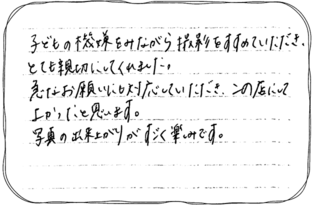 子どもの機嫌をみながら撮影をすすめていただき、
とても親切にしてくれました。
急なお願いにも対応していただき、この店にして
よかったと思います。
写真の出来上がりがすごく楽しみです。